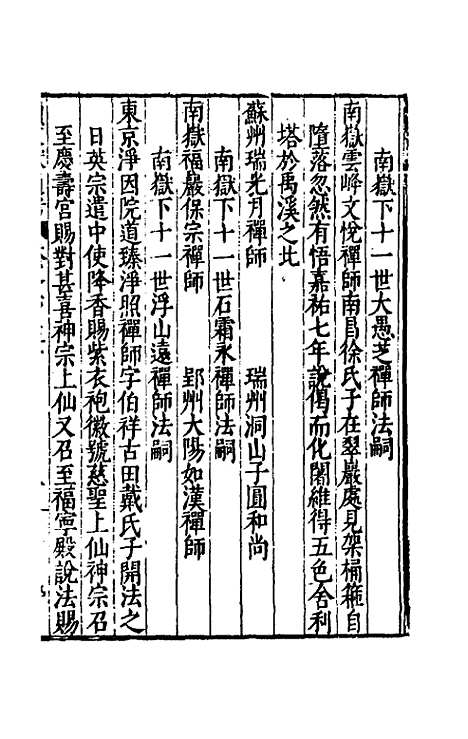 南嶽下十一世大愚芝禪師法嗣
南嶽雲峰文悅禪師南昌徐氏子在翠巖處見架桶箍自
墮落忽然有悟嘉祐七年說偈而化闍維得五色舍利
塔於禹溪之北
蘇州瑞光月禪師　瑞州洞山子圓和尚
南嶽下十一世石霜永禪師法嗣
南嶽福嚴保宗禪師　郢州大陽如漢禪師
南嶽下十一世浮山遠禪師法嗣
東京淨因院道臻淨照禪師字伯祥古田戴氏子開法之
日英宗遣中使降香賜紫衣袍徽號慈聖上仙神宗召
至慶壽宮賜對甚喜神宗上仙又召至福寧殿說法賜